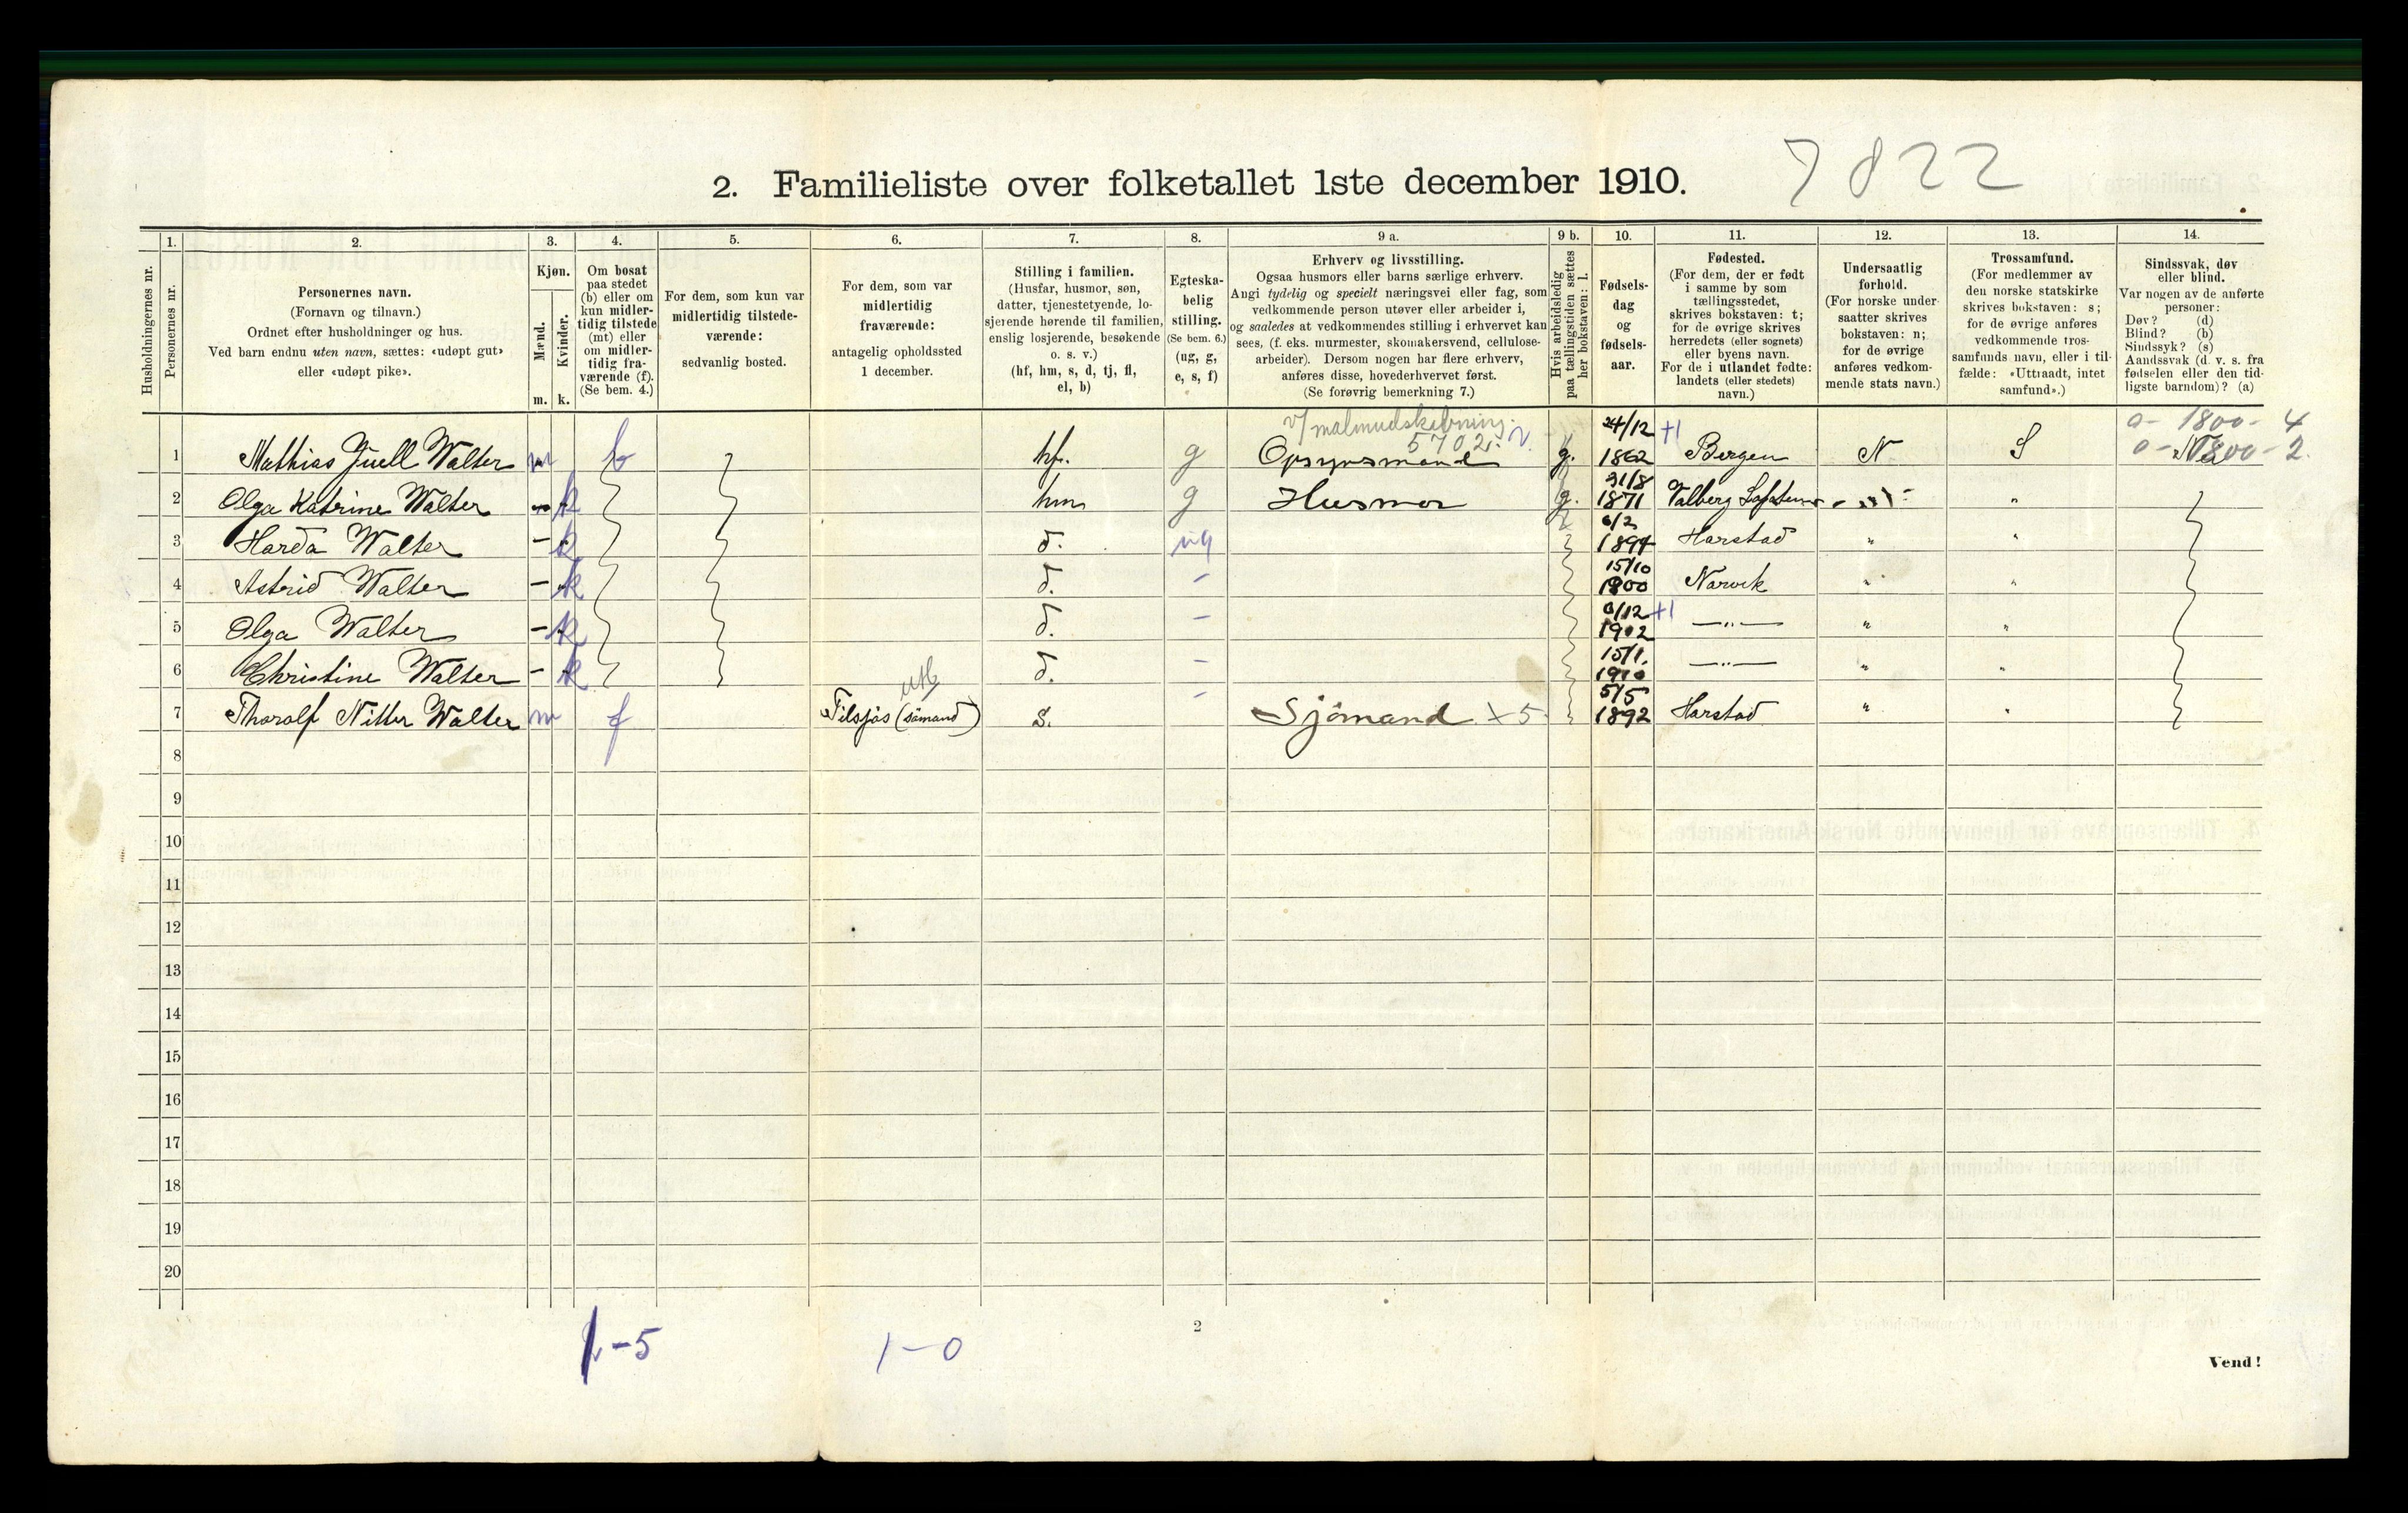 2. Familieliste over folketallet 1ste december 1910.
7822
Husholdningernes nr.
1. Personernes nr.
2. Personernes navn.
(Fornavn og tilnavn.)
Ordnet efter husholdninger og hus.
Ved barn endnu uten navn, sættes: «udøpt gut»
eller «udøpt pike».
3. Kjøn.
Mænd. m.
Kvinder. k.
4. Om bosat
paa stedet
(b) eller om
kun midler-
tidig tilstede
(mt) eller
om midler-
tidig fra-
værende (f).
(Se bem. 4.)
5. For dem, som kun var
midlertidig tilstede-
værende:
sedvanlig bosted.
6. For dem, som var
midlertidig
fraværende:
antagelig opholdssted
1 december.
7. Stilling i familien.
(Husfar, husmor, søn,
datter, tjenestetyende, lo-
sjerende hørende til familien,
enslig losjerende, besøkende
o. s. v.)
(hf, hm, s, d, tj, fl,
el, b)
8. Egteska-
belig
stilling.
(Se bem. 6.)
(ug, g,
e, s, f)
9 a. Erhverv og livsstilling.
Ogsaa husmors eller barns særlige erhverv.
Angi tydelig og specielt næringsvei eller fag, som
vedkommende person utøver eller arbeider i,
og saaledes at vedkommendes stilling i erhvervet kan
sees, (f. eks. murmester, skomakersvend, cellulose-
arbeider). Dersom nogen har flere erhverv,
anføres disse, hovederhvervet først.
(Se forøvrig bemerkning 7.)
9 b. Hvis arbeidsledig
paa tællingstiden sættes
her bokstaven: l.
10. Fødsels-
dag
og
fødsels-
aar.
11. Fødested.
(For dem, der er født
i samme by som
tællingsstedet,
skrives bokstaven: t;
for de øvrige skrives
herredets (eller sognets)
eller byens navn.
For de i utlandet fødte:
landets (eller stedets)
navn.)
12. Undersaatlig
forhold.
(For norske under-
saatter skrives
bokstaven: n;
for de øvrige
anføres vedkom-
mende stats navn.)
13. Trossamfund.
(For medlemmer av
den norske statskirke
skrives bokstaven: s;
for de øvrige anføres
vedkommende tros-
samfunds navn, eller i til-
fælde: «Uttraadt, intet
samfund».)
14. Sindssvak, døv
eller blind.
Var nogen av de anførte
personer:
Døv? (d)
Blind? (b)
Sindssyk? (s)
Aandssvak (d. v. s. fra
fødselen eller den tid-
ligste barndom)? (a)
v/ malmudskibning. 24/12 +1 0 - 1800 - 4
5702. 0 - 1800 - 2.
1 Mathias Juell Walter m b hf. g Opsynsmand g. 1862 Bergen N S
31/8
2 Olga Katrine Walter - k hm g Husmor g. 1871 Valberg Lofoten - " - "
6/2
3 Harda Walter - k d. ug 1894 Harstad " "
15/10
4 Astrid Walter - k d. - 1900 Narvik " "
6/12 +1
5 Olga Walter - k d. - 1902 — " — " "
15/1.
6 Christine Walter - k d. - 1910 — " — " "
utl. 5/5
7 Thoralf Nitter Walter m f Tilsjøs (sömand) s. - Sjömand x 5 1892 Harstad " "
8
9
10
11
12
13
14
15
16
17
18
19
20
1-5
1-0
2
Vend!